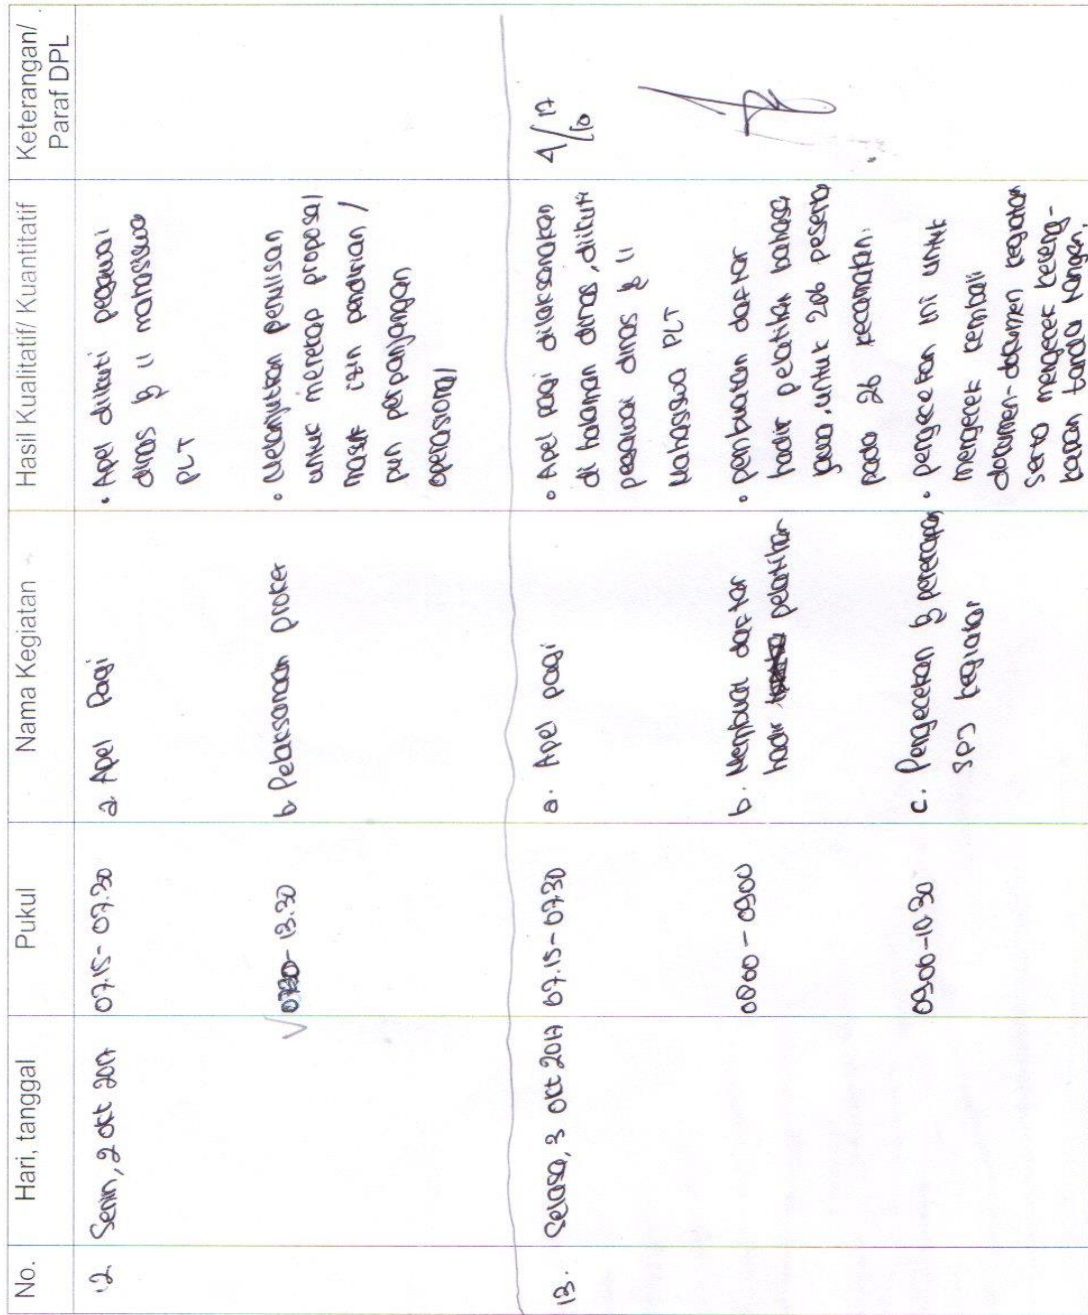 No. Hari, tanggal Pukul Nama Kegiatan Hasil Kualitatif/ Kuantitatif Keterangan/
Paraf DPL
12 Senin, 2 Okt 2017 07.15 - 07.30 a. Apel Pagi • Apel diikuti pegawai
dinas & 11 mahasiswa
PLT
0730 - 13.30 b. Pelaksanaan proker • Melanjutkan penulisan
untuk merekap proposal
masuk izin pendirian /
pun perpanjangan
operasional
13. Selasa, 3 Okt 2017 07.15 - 0730 a. Apel pagi • Apel pagi dilaksanakan 4/10 17
di halaman dinas, diikuti
pegawai dinas & 11
Mahasiswa PLT
0800 - 0900 b. Membuat daftar • pembuatan daftar
hadir pelatihan hadir pelatihan bahasa
jawa, untuk 206 peserta
pada 26 kecamatan.
0900 - 10.30 c. Pengecekan & penerapan • pengecekan ini untuk
SPJ kegiatan mengecek kembali
dokumen-dokumen kegiatan
serta mengecek keleng-
kapan tanda tangan.